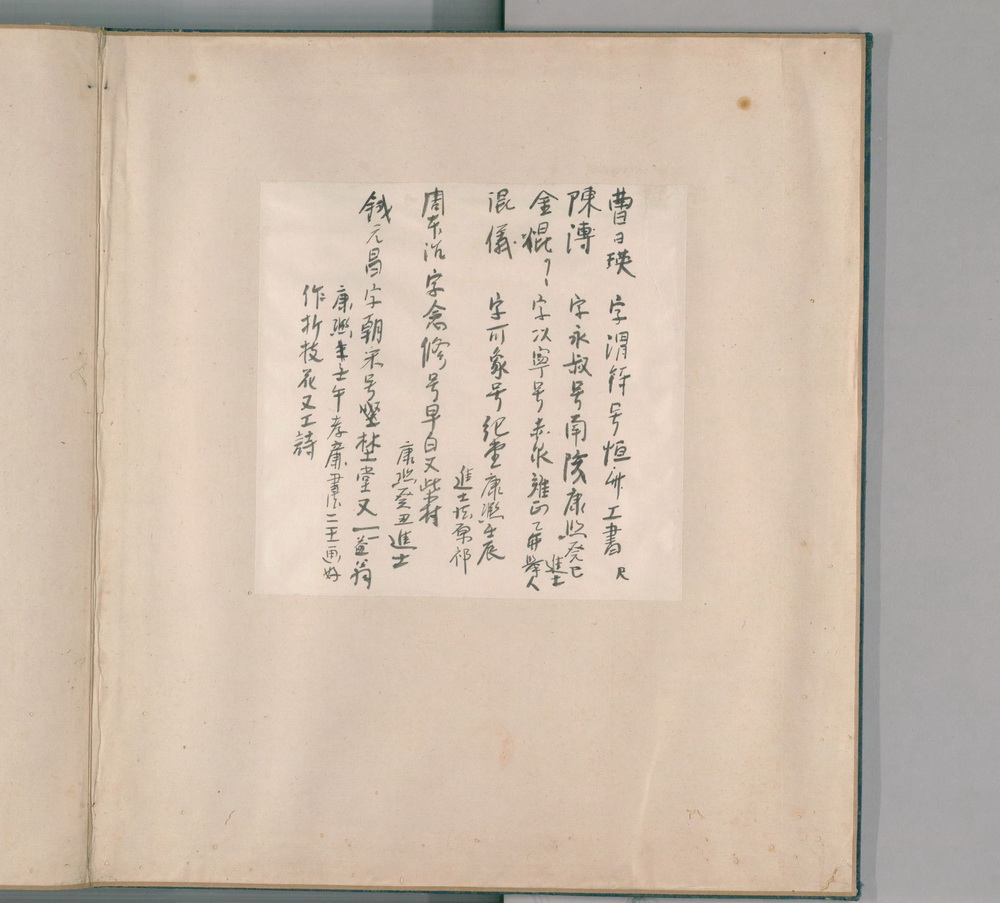 曹曰瑛 字渭符号恒斋工書尺
陳溥 字永叔号南陔康熙癸巳
進士
金焜 字以寧号赤泉雍正乙卯舉人
混儀 字可象号紀堂康熙壬辰
進士 原祁
周本治字念修号早白又柴村
康熙癸丑進士
錢元昌字朝采号埜堂又一益翁
康熙壬午孝廉書法二王画好
作折枝花又工詩